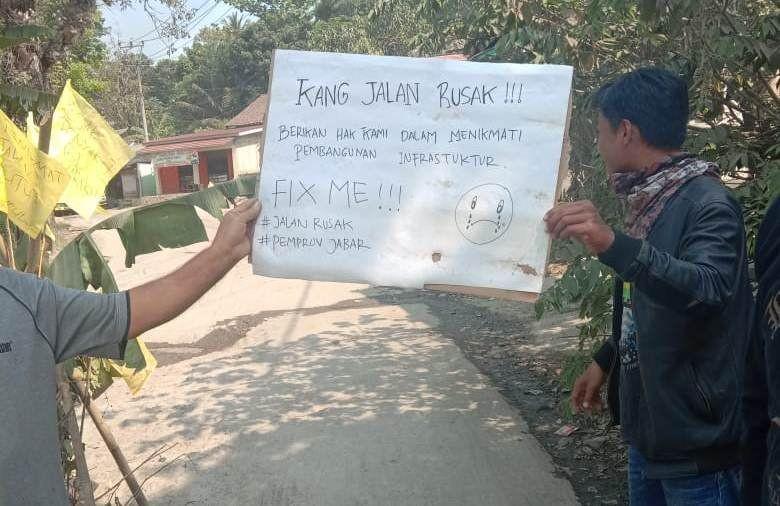 KANG JALAN RUSAK !!!
BERIKAN HAK KAMI DALAM MENIKMATI
PEMBANGUNAN INFRASTUKTUR.
FIX ME !!!
#JALAN RUSAK
#PEMPROV JABAR